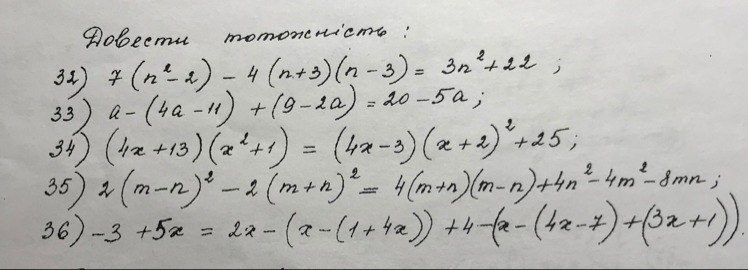 Довести тотожність:
32) 7(n²-2) - 4(n+3)(n-3) = 3n²+22;
33) a-(4a-11)+(9-2a)=20-5a;
34) (4x+13)(x²+1) = (4x-3)(x+2)²+25;
35) 2(m-n)²-2(m+n)²= 4(m+n)(m-n)+4n²-4m²-8mn;
36) -3+5x = 2x-(x-(1+4x))+4-(x-(4x-7)+(3x+1)).